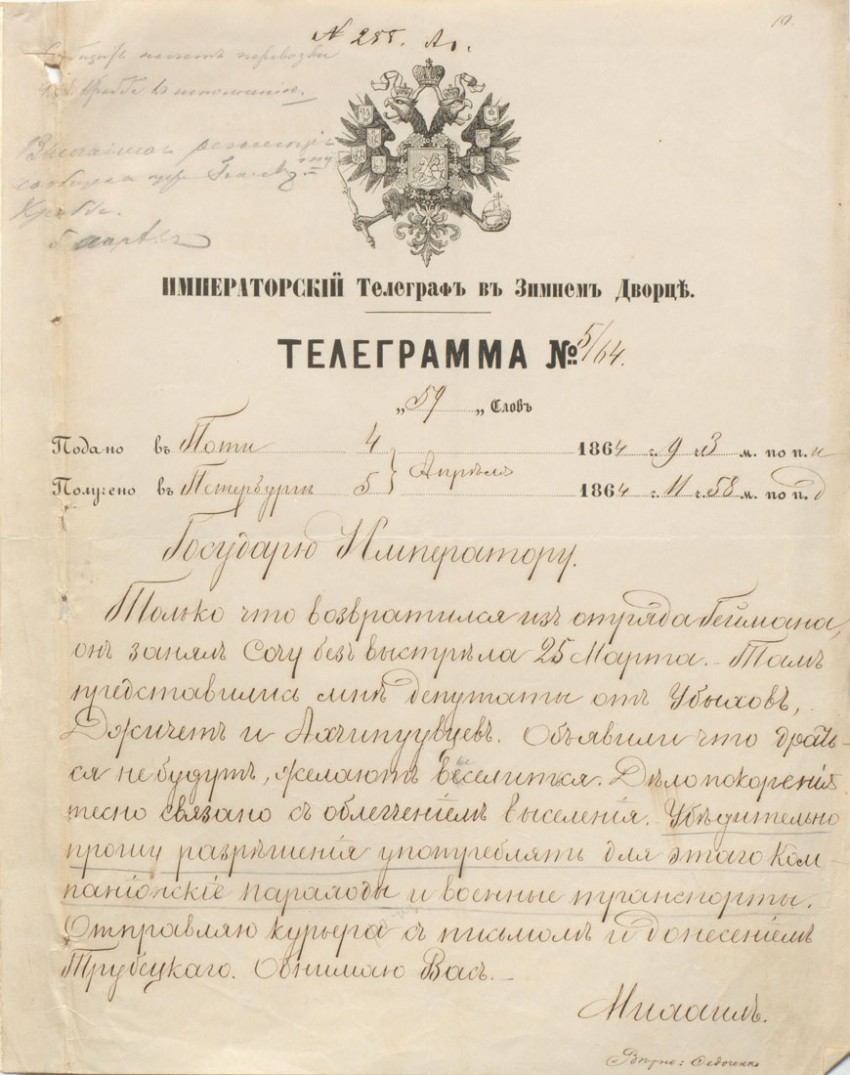 N 255.
19.
ИМПЕРАТОРСКІЙ Телеграфъ въ Зимнемъ Дворцѣ.
ТЕЛЕГРАММА № 5/64.
„ 59 „ Словъ
Подано въ Поти 4 Апрѣля 1864 г. 9 ч. 3 м. по п. н
Получено въ Петербургѣ 5 1864 г. 11 ч. 58 м. по п. д
Государю Императору.
Только что возвратился изъ отряда Геймана,
онъ занялъ Сочу безъ выстрѣла 25 Марта. Тамъ
представились мнѣ депутаты отъ Убыховъ,
Джигетъ и Ахчипсувцевъ. Объявили что драть-
ся не будутъ, желаютъ выселиться. Дѣло покоренія
тесно связано съ облегченіемъ выселенія. Убѣдительно
прошу разрѣшенія употреблять для этаго Ком-
паніонскіе пароходы и военные транспорты.
Отправляю курьера съ письмомъ и донесеніемъ
Трубецкаго. Обнимаю Васъ.
Михаилъ.
Вѣрно:
къ исполненію.
Высочайшая
Краббе.
5 апрѣля